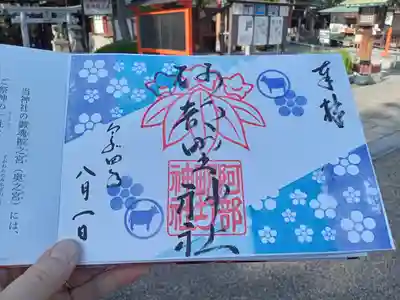 奉拝
阿部野神社
阿部野神社
令和四年
八月一日
当神社の御魂振之宮（奥之宮）には、